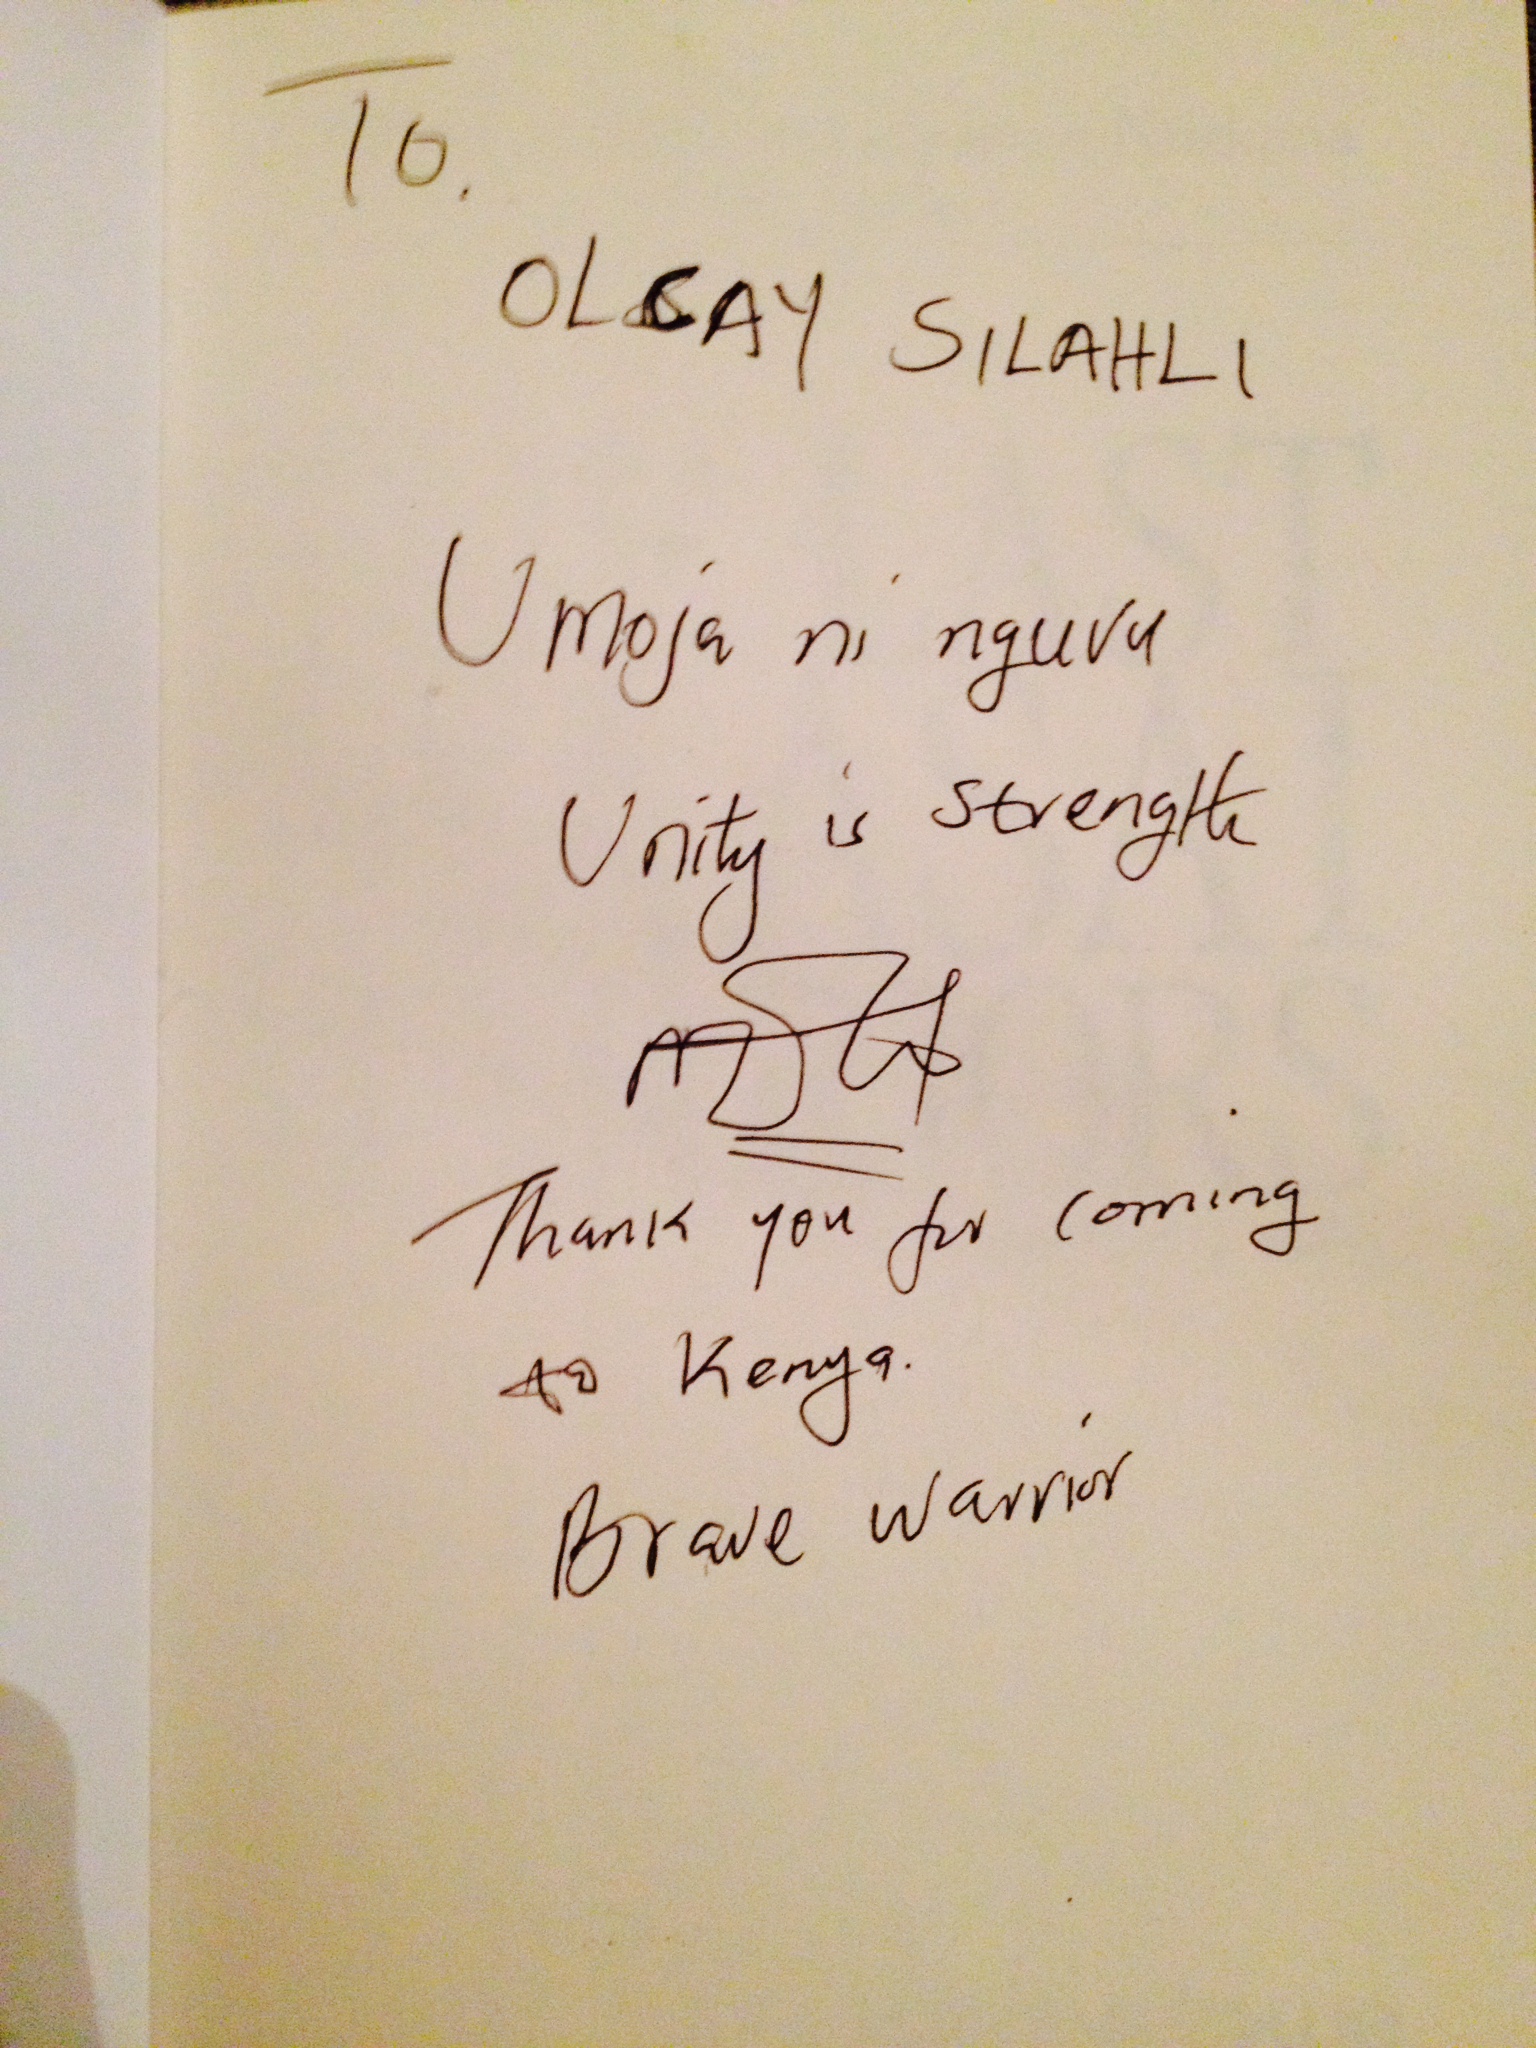 To.
OLCAY SILAHLI
Umoja ni nguvu
Unity is strength
Thank you for coming
to Kenya.
Brave warrior